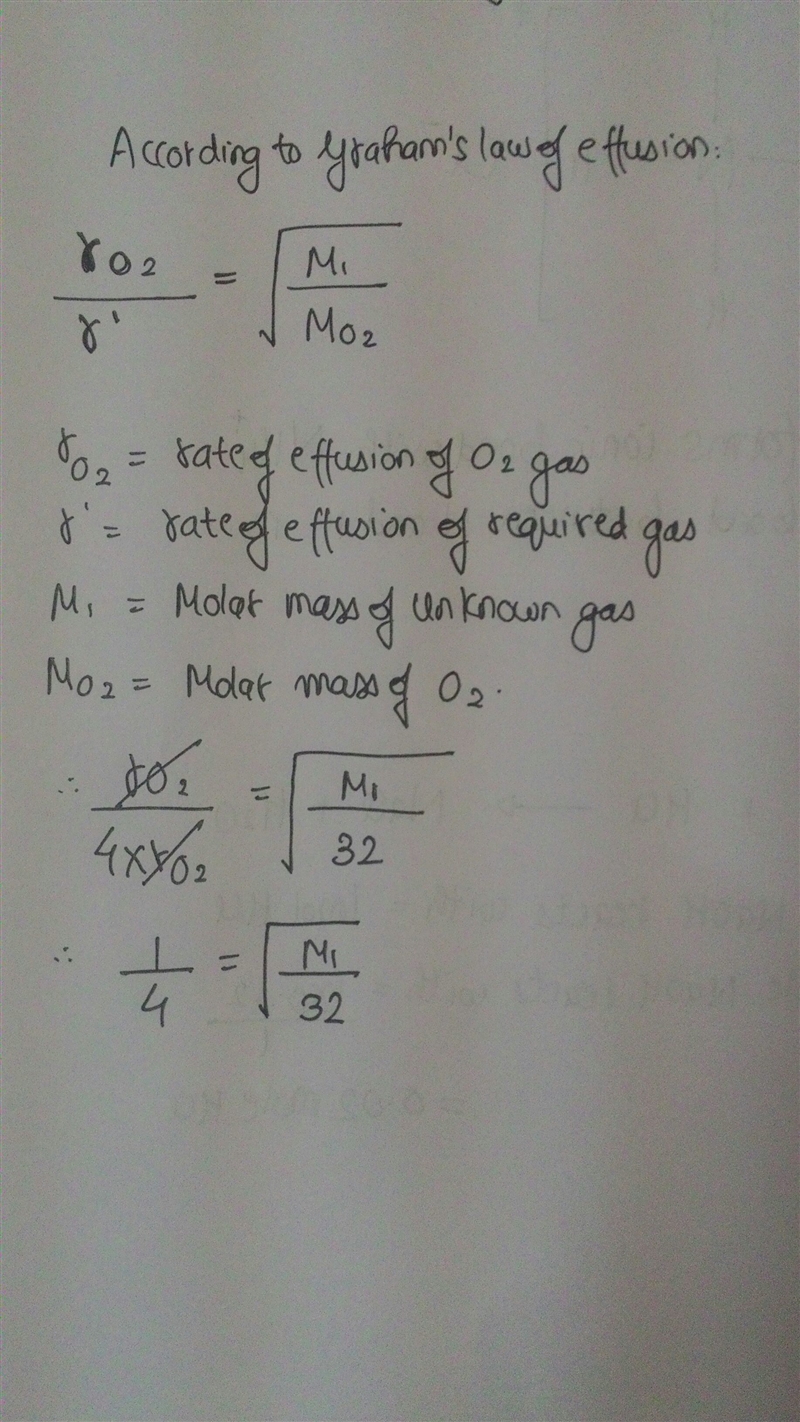 According to Graham's law of effusion:
rO2 / r' = √(M1 / MO2)
rO2 = rate of effusion of O2 gas
r' = rate of effusion of required gas
M1 = Molar mass of unknown gas
MO2 = Molar mass of O2.
∴ rO2 / 4×rO2 = √(M1 / 32)
∴ 1 / 4 = √(M1 / 32)